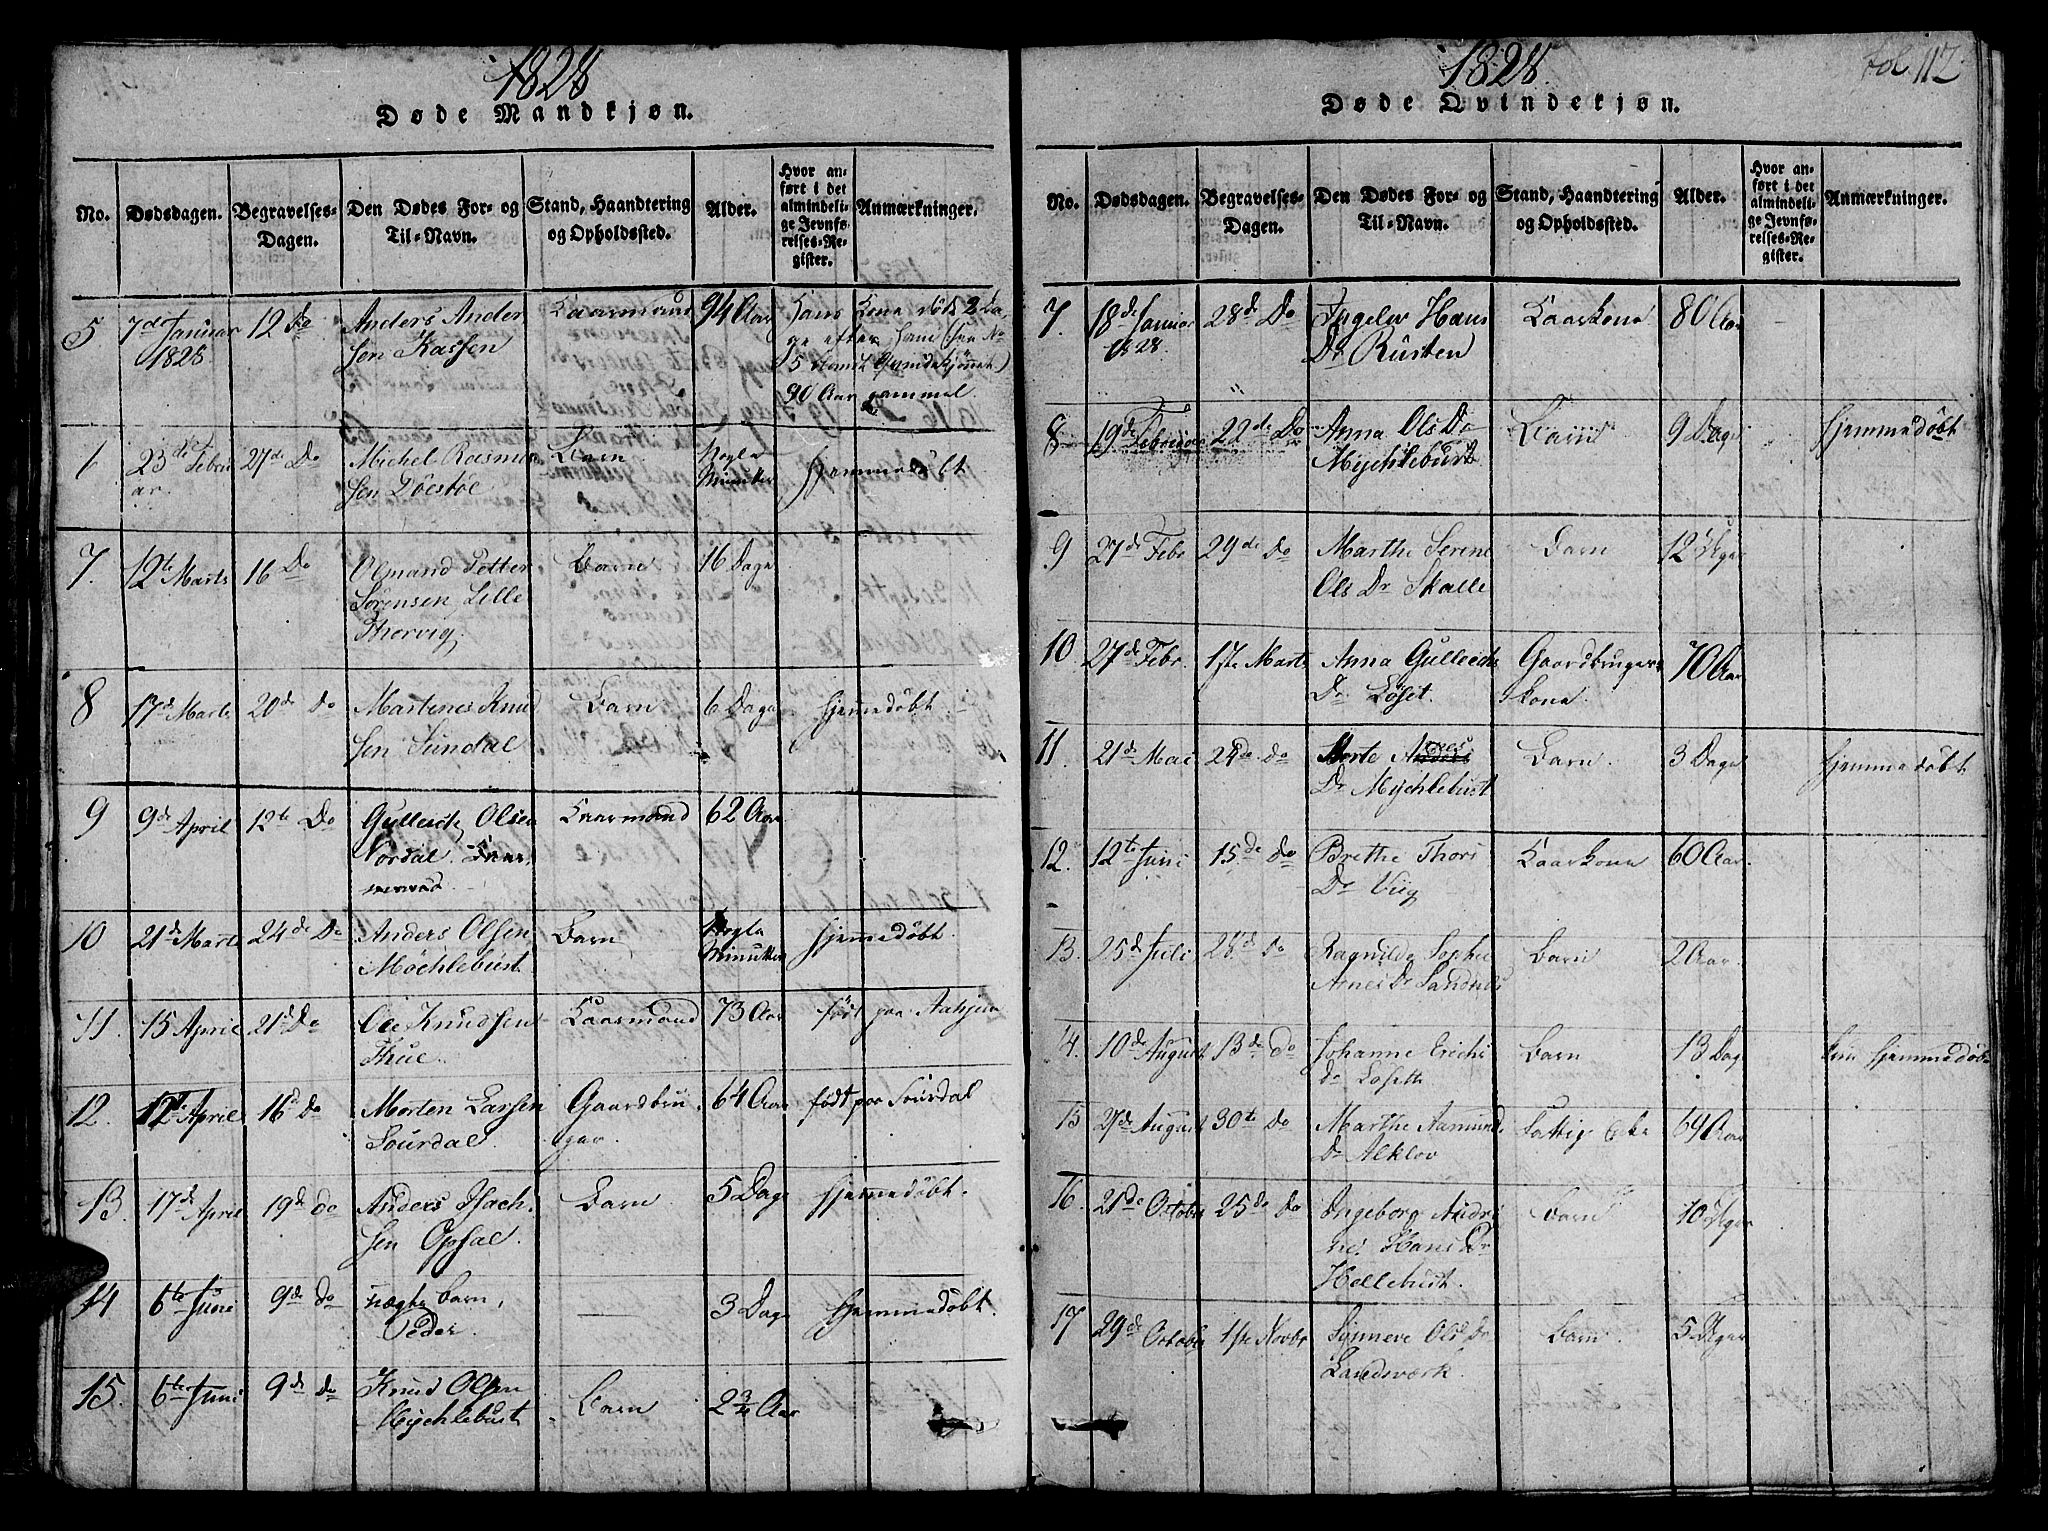 1828
Døde Mandkjøn.
No. Dødsdagen. Begravelses-Dagen. Den Dødes For- og Til-Navn. Stand, Haandtering og Opholdssted. Alder. Hvor anført i det almindelige Jevnførelses-Register. Anmærkninger.
5 7de Januar 12 Do Anders Ander Kaarmand 94 Aar Hans Kona døde 2 Da
1828 sen Kassen ge efter ham (see No
5 blandt Qvindekjønnet)
90 Aar gammel
6 23de Febru 27de Do Michel Rasmus Barn Nogle Hjemmedøbt
ar. sen Minuter
7. 12te Marts 16 Do Olmand Petter Barn 16 Dage
Sørensen Lille
Thorvig.
8 17d Marts 20de do Martenes Knud Barn 6 Dage Hjemmedøbt
sen Sundal
9 9de April 12te Do Gullerick Olsen Kaarmand 62 Aar
Nordal.
10 21de Marts 24de Do Anders Olsen Barn Nogle Hjemmedøbt.
Møchlebust Minutter
11. 15 April 21d Do Ole Knudsen Kaarmand 73 Aar født paa Aahjem
Thue.
12. 12te April 16d Do Morten Larsen Gaardbru 64 Aar født paa Sourdal
Sourdal. ger.
13. 17de April 19d do Anders Isach Barn 5 Dage Hjemmedøbt.
sen Opsal.
14 6te Juni 9de do uægte Barn, 3 Dage Hjemmedøbt.
Peder.
15. 6te Juni 9de do Knud Olsen Barn 2 3/4 Aar
Mychlebust
1828. fol. 112
Døde Qvindekjøn.
No. Dødsdagen. Begravelses-Dagen. Den Dødes For- og Til-Navn. Stand, Haandtering og Opholdssted. Alder. Hvor anført i det almindelige Jevnførelses-Register. Anmærkninger.
7. 18de Januar 28de Do Ingelev Hans Kaarkona 80 Aar
1828. Dr Rusten
8 19de Februar 22de Do Anna Ols Dr Barn 9 Dage Hjemmedøbt
Mychlebust
9 27de Febr 29de Do Marthe Serene Barn 12 Uger
Ols Dr Skalle
10. 27de Febr. 17te Marts Anna Gullerichs Gaardbruger 70 Aar
Dr Løset. kona
11. 21de Mai 24de do Marte Barn. 3 Dage Hjemmedøbt
Dr Mychlebust
12. 12te Juni 15de do Brethe Thors Kaarkona 60 Aar.
Dr Viig
13. 25de Juli do Ragnilde Sophie Barn 2 Aar.
Arnes Dr Sandnes
14. 10de August 13de do Johanne Erichs Barn 13 Dage Hjemmedøbt
Dr Losette
15 27de August 30te Do Marthe Aamund Fattig Enke 64 Aar
Dr Alklov
16. 21de October 25de Do Ingeborg Andri Barn 10 Uger
ne Hans Dr
Hellebust.
17 29de October 1ste Novbr Synneve Ols Dr Barn 5 Uger
Landsværk.